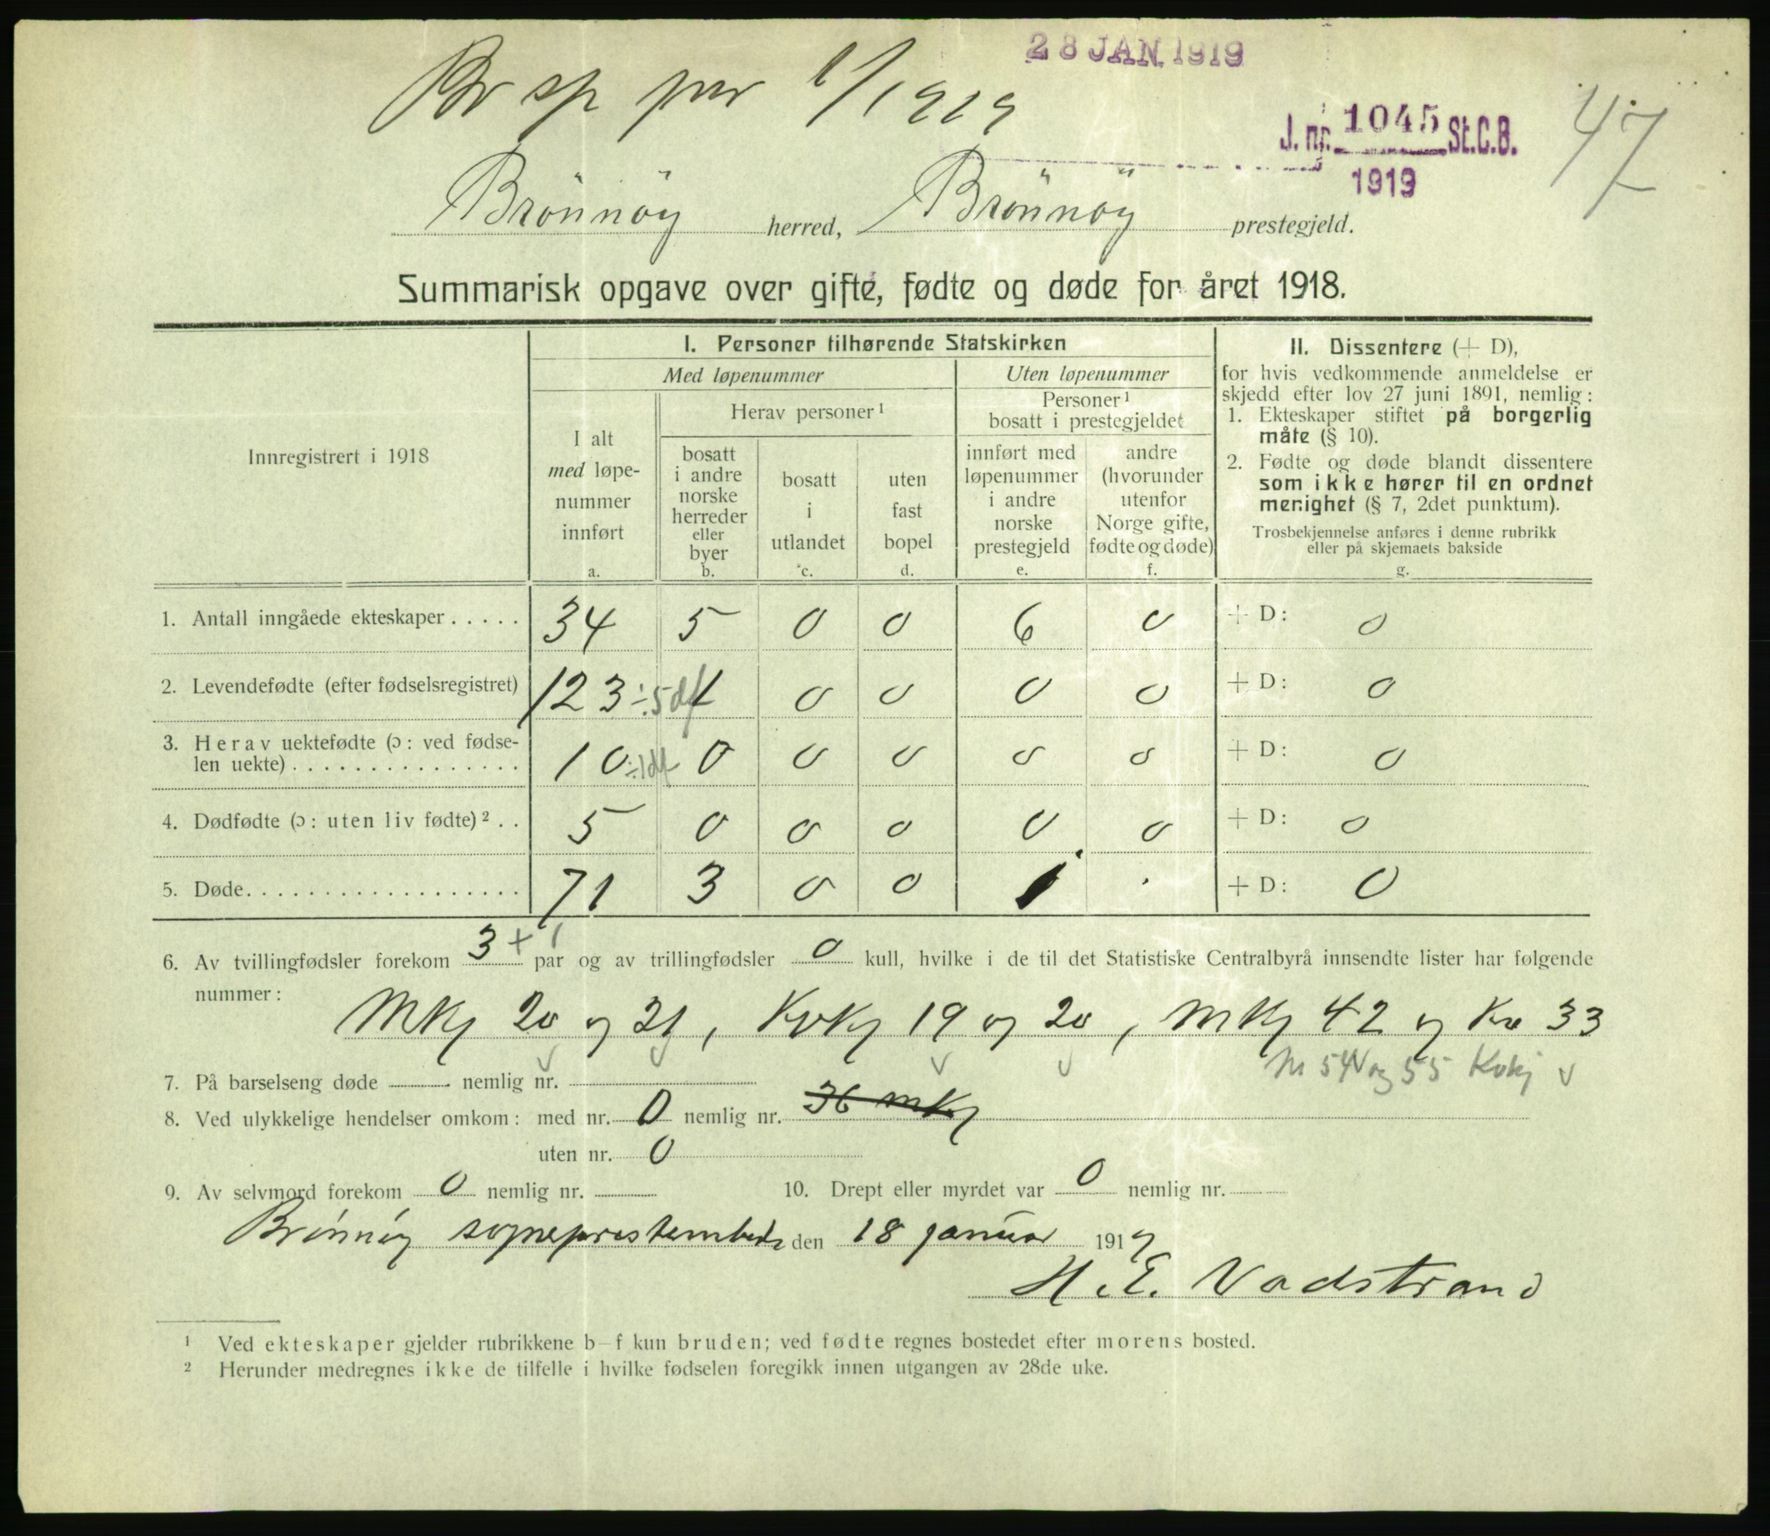 28 JAN. 1919
Br sp pnr 1/1919
J. nr. 1045 St.C.B.
1919
47
Brönnöy herred, Brönnöy prestegjeld.
Summarisk opgave over gifte, fødte og døde for året 1918.
Innregistrert i 1918
I. Personer tilhørende Statskirken
Med løpenummer
Uten løpenummer
I alt
med løpe-
nummer
innført
a.
Herav personer ¹
bosatt
i andre
norske
herreder
eller
byer
b.
bosatt
i
utlandet
c.
uten
fast
bopel
d.
Personer ¹
bosatt i prestegjeldet
innført med
løpenummer
i andre
norske
prestegjeld
e.
andre
(hvorunder
utenfor
Norge gifte,
fødte og døde)
f.
II. Dissentere (+ D),
for hvis vedkommende anmeldelse er
skjedd efter lov 27 juni 1891, nemlig:
1. Ekteskaper stiftet på borgerlig
måte (§ 10).
2. Fødte og døde blandt dissentere
som ikke hører til en ordnet
menighet (§ 7, 2det punktum).
Trosbekjennelse anføres i denne rubrikk
eller på skjemaets bakside
g.
1. Antall inngåede ekteskaper . . . . . 34 5 0 0 6 0 + D: 0
2. Levendefødte (efter fødselsregistret) 123 ÷5 df 1 0 0 0 0 + D: 0
3. Herav uektefødte (ɔ: ved fødse-
len uekte) . . . . . . . . . . . . . . . 10 ÷1 df 0 0 0 0 0 + D: 0
4. Dødfødte (ɔ: uten liv fødte) ² . . 5 0 0 0 0 0 + D: 0
5. Døde. . . . . . . . . . . . . . . . . . 71 3 0 0 1 . + D: 0
6. Av tvillingfødsler forekom 3 + 1 par og av trillingfødsler 0 kull, hvilke i de til det Statistiske Centralbyrå innsendte lister har følgende
nummer:
Mkj 20 og 21, Kvkj 19 og 20, Mkj 42 og Kv 33
M 54 og 55 Kvkj
7. På barselseng døde nemlig nr.
8. Ved ulykkelige hendelser omkom: med nr. 0 nemlig nr. 36 mkj
uten nr. 0
9. Av selvmord forekom 0 nemlig nr.
10. Drept eller myrdet var 0 nemlig nr.
Brönnöy sogneprestembede den 18 januar 1919
H. E. Vadstrand
¹ Ved ekteskaper gjelder rubrikkene b–f kun bruden; ved fødte regnes bostedet efter morens bosted.
² Herunder medregnes ikke de tilfelle i hvilke fødselen foregikk innen utgangen av 28de uke.